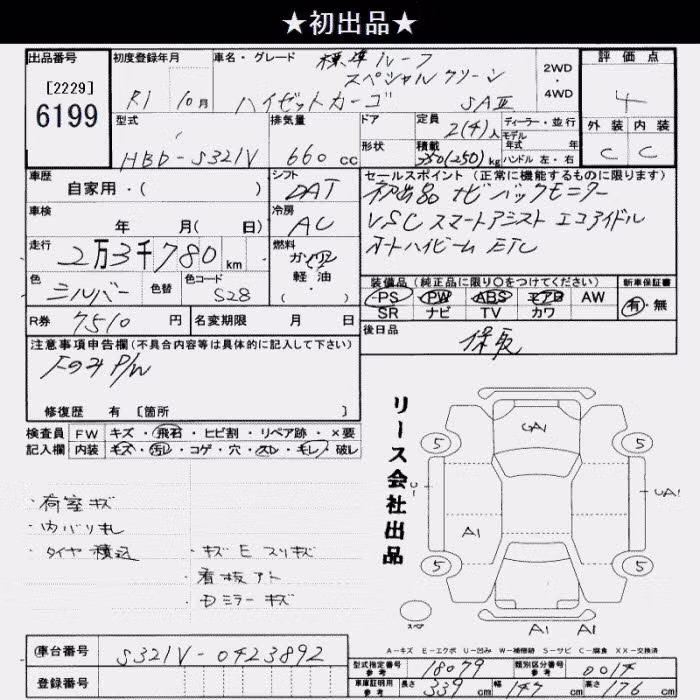 ★初出品★
出品番号
[2229]
6199
初度登録年月
R1 10月
車名・グレード
標準ルーフ
スペシャルクリーン
ハイゼットカーゴ SAⅢ
2WD
・
4WD
評価点
4
外装 内装
C C
型式
HBD-S321V
排気量
660 cc
ドア
形状
定員
2(4)人
積載
350(250)kg
ディーラー・並行
モデル
年式 年
ハンドル 左・右
車歴
自家用・( )
シフト
DAT
車検
年 月( 日)
冷房
AC
走行
2万3千780 km
燃料
ガソリン
軽油
( ・ )
色
シルバー
色替
色コード
S28
R券
7510 円
名変期限 月 日
セールスポイント(正常に機能するものに限ります)
初出品 ナビ バックモニター
VSC スマートアシスト エコアイドル
オートハイビーム ETC
装備品(純正品に限り○をつけてください)
PS PW ABS エアB AW
SR ナビ TV カワ
新車保証書
有・無
後日品
保取
注意事項申告欄(不具合内容等は具体的に記入して下さい)
Fのみ P/W
修復歴 有 [箇所 ]
検査員 FW キズ・飛石・ヒビ割・リペア跡・×要
記入欄 内装 キズ・汚レ・コゲ・穴・スレ・キレ・破レ
・荷室キズ
・内バリ キレ
・タイヤ積込
・キズ E スリキズ
・看板アト
・Dミラーキズ
リース会社出品
GA1
5 5
UA1
A1
5 5
スペア
A1 A1
A−キズ E−エクボ U−凹み W−補修跡 S−サビ C−腐食 XX−交換済
車台番号
S321V-0423892
登録番号
型式指定番号
参考
18079
類別区分番号
参考
0014
車庫証明用
参考
長さ 339 cm
幅 147 cm
高さ 176 cm